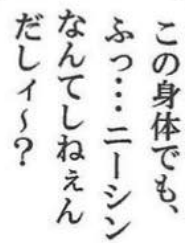 この身体でも、
ふっ…ニーシン
なんてしねぇん
だしィ～?